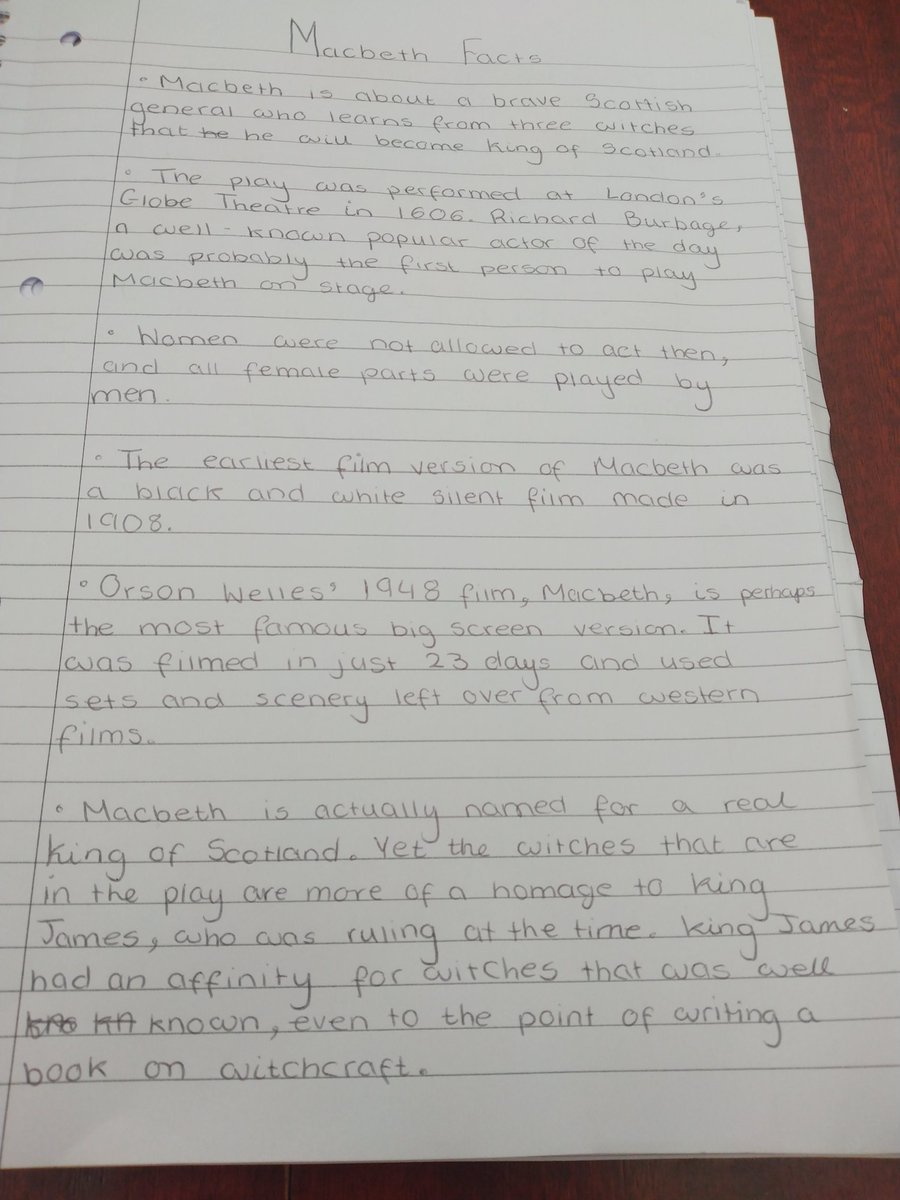 Macbeth Facts
• Macbeth is about a brave Scottish
general who learns from three witches
that he he will become king of Scotland.
• The play was performed at London's
Globe Theatre in 1606. Richard Burbage,
a well-known popular actor of the day
was probably the first person to play
Macbeth on stage.
• Women were not allowed to act then,
and all female parts were played by
men.
• The earliest film version of Macbeth was
a black and white silent film made in
1908.
• Orson Welles' 1948 film, Macbeth, is perhaps
the most famous big screen version. It
was filmed in just 23 days and used
sets and scenery left over from western
films.
• Macbeth is actually named for a real
king of Scotland. Yet the witches that are
in the play are more of a homage to king
James, who was ruling at the time. King James
had an affinity for witches that was well
known, even to the point of writing a
book on witchcraft.